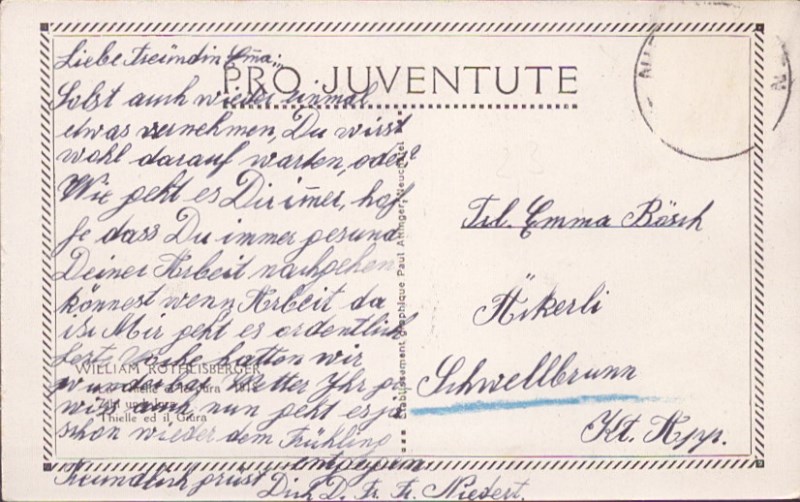 Liebe Freundin Em̄a:,
PRO JUVENTUTE
Solst auch wieder einmal
etwas vernehmen, Du wirst
wohl darauf warten, oder?
Wie geht es Dir im̄er, hof
fe dass Du immer gesund
Deiner Arbeit nachgehen
könnest wenn Arbeit da
ist Mir geht es ordentlich
Letzte Woche hatten wir
wunderbar Wetter Ihr ge
wiss auch, nun geht es ja
schon wieder dem Frühling
entgegen.
Freundlich grüst Dich D. Fr. Fr.
WILLIAM ROTHLISBERGER
Thielle
Jura
Zihl und Jura
Thielle ed il Giura
Etablissement graphique Paul Attinger, Neuchâtel
Frl. Emma Bösch
Äkerli
Schwellbrunn
Kt. App.